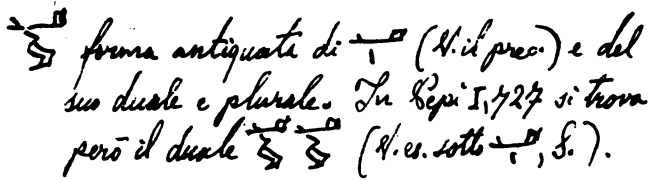 forma antiquata di (V. il prec.) e del
suo duale e plurale. In Pepi I, 727 si trova
però il duale (V. es. sotto , S.).